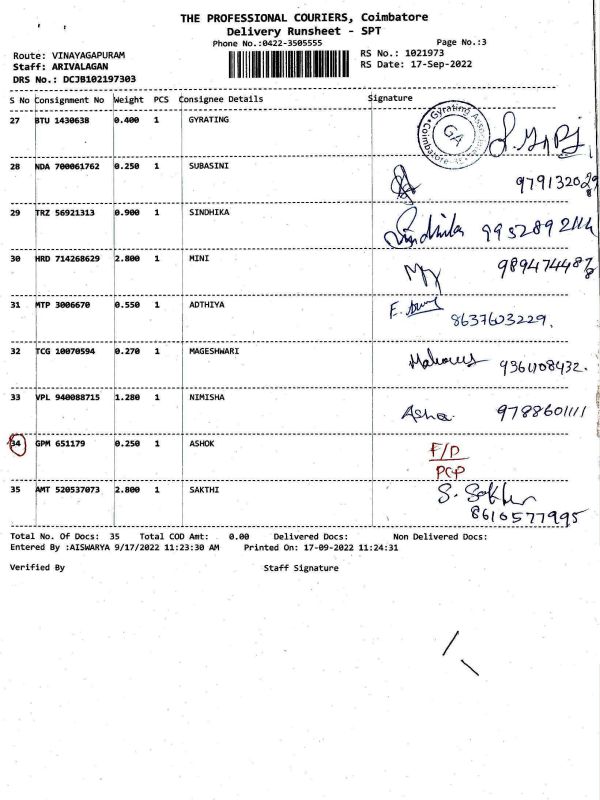 THE PROFESSIONAL COURIERS, Coimbatore
Delivery Runsheet - SPT
Phone No.:0422-3505555 Page No.:3
Route: VINAYAGAPURAM RS No.: 1021973
Staff: ARIVALAGAN RS Date: 17-Sep-2022
DRS No.: DCJB102197303
S No Consignment No Weight PCS Consignee Details Signature
27 BTU 1430638 0.400 1 GYRATING
GA
28 NDA 700061762 0.250 1 SUBASINI
29 TRZ 56921313 0.900 1 SINDHIKA Sindhika
30 HRD 714268629 2.800 1 MINI
31 MTP 3006670 0.550 1 ADTHIYA
8637603229.
32 TCG 10070594 0.270 1 MAGESHWARI
33 VPL 940088715 1.280 1 NIMISHA
Asha 9788601111
34 GPM 651179 0.250 1 ASHOK F/D
PCP
35 AMT 520537073 2.800 1 SAKTHI S. Sakthi
8610577995
Total No. Of Docs: 35 Total COD Amt: 0.00 Delivered Docs: Non Delivered Docs:
Entered By :AISWARYA 9/17/2022 11:23:30 AM Printed On: 17-09-2022 11:24:31
Verified By Staff Signature